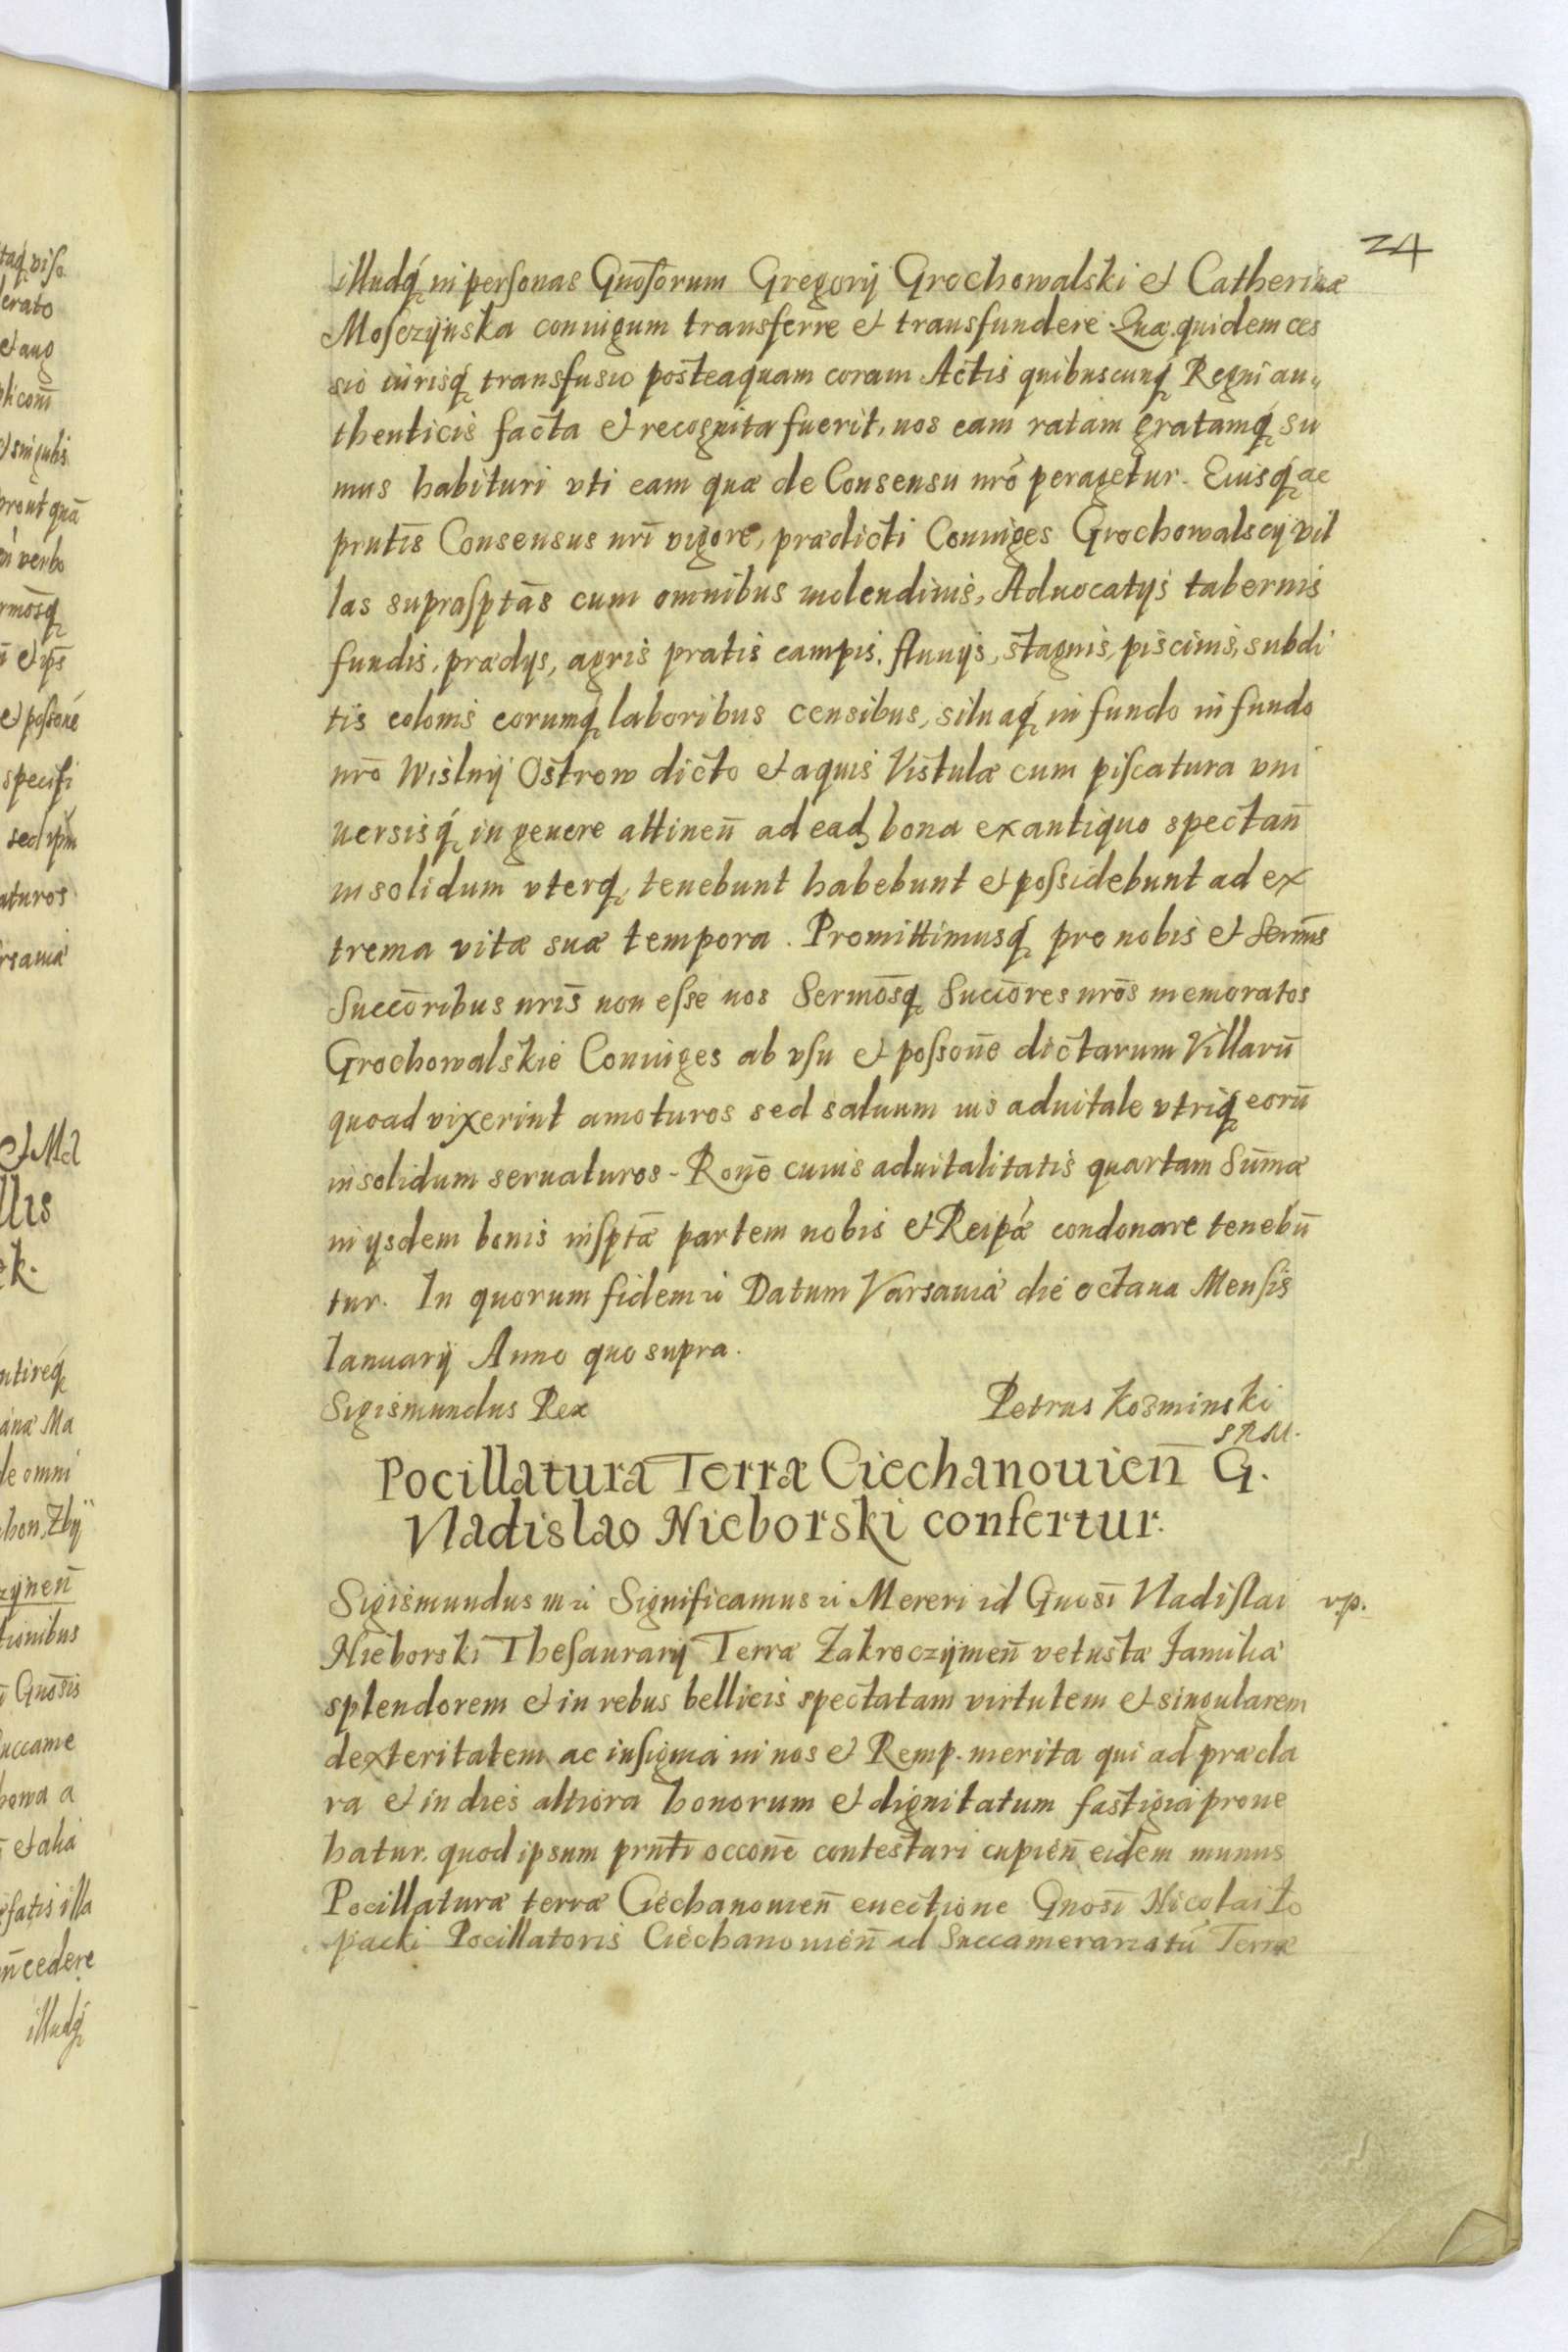 24
illudq́ in personas Gnosorum Gregorij Grochowalski et Catherinæ
Mosczÿnska coniugum transferre et transfundere. Quæ quidem ces
sio iurisq́ transfusio posteaquam coram Actis quibuscunq́ Regni au„
thenticis facta et recognita fuerit, nos eam ratam gratamq́ su
mus habituri vti eam quæ de Consensu nrō peragetur. Eiusq́ ac
prntīs Consensus nrī vigore, prædicti Coniuges Grochowalscij vil
las suprasptās cum omnibus molendinis, Aduocatijs tabernis
fundis, prædijs, agris pratis campis, fluuijs, stagnis, piscinis, subdi
tis colonis eorumq́ laboribus censibus, siluaq́ in fundo in fundo
nrō Wislnÿ Ostrow dicto et aquis Vistulæ cum piscatura vni
uersisq́ in genere attinen̄ ad ead₃ bona ex antiquo spectan̄
in solidum vterq́ tenebunt habebunt et possidebunt ad ex
trema vitæ suæ tempora. Promittimusq́ pro nobis et Sermīs
Succōribus nrīs non esse nos Sermōsq́ Succōres nrōs memoratos
Grochowalskie Coniuges ab vsu et possonē dictarum Villarū
quoad vixerint amoturos sed saluum ius aduitale vtriq́ eorū
in solidum seruaturos - Ronē cuius aduitalitatis quartam Sūmæ
in ijsdem bonis insptǣ partem nobis et Reipæ condonare tenebū
tur. In quorum fidem ꝛc Datum Varsauiæ die octaua Mensis
Ianuarij Anno quo supra.
Sigismundus Rex
Petrus Kozminski
SRM.
Pocillatura Terræ Ciechanouien̄ G.
Vladislao Nieborski confertur.
Sigismundus III ꝛc Significamus ꝛc Mereri id Gnosī Vladislai
vp.
Nieborski Thesaurarij Terræ Zakroczÿmen̄ vetustæ familiæ
splendorem et in rebus bellicis spectatam virtutem et singularem
dexteritatem ac insignia in nos et Remp. merita qui ad præcla
ra et in dies altiora honorum et dignitatum fastigia proue
hatur. quod ipsum prntī occonē contestari cupien̄ eidem munus
Pocillaturæ terræ Ciechanouien̄ euectione Gnosī Nicolai Ło
packi Pocillatoris Ciechanouien̄ ad Succamerariatū Terræ